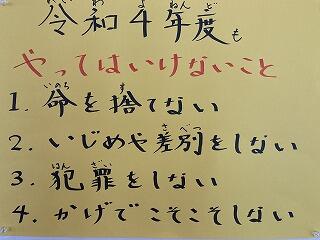 令和4年度も
やってはいけないこと
1. 命を捨てない
2. いじめや差別をしない
3. 犯罪をしない
4. かげでこそこそしない